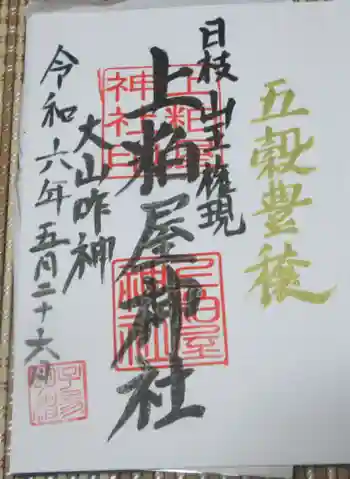 五穀豊穣
日枝山王権現
上粕屋神社
大山咋神
令和六年五月二十六日
上粕屋
神社印
上粕屋
神社